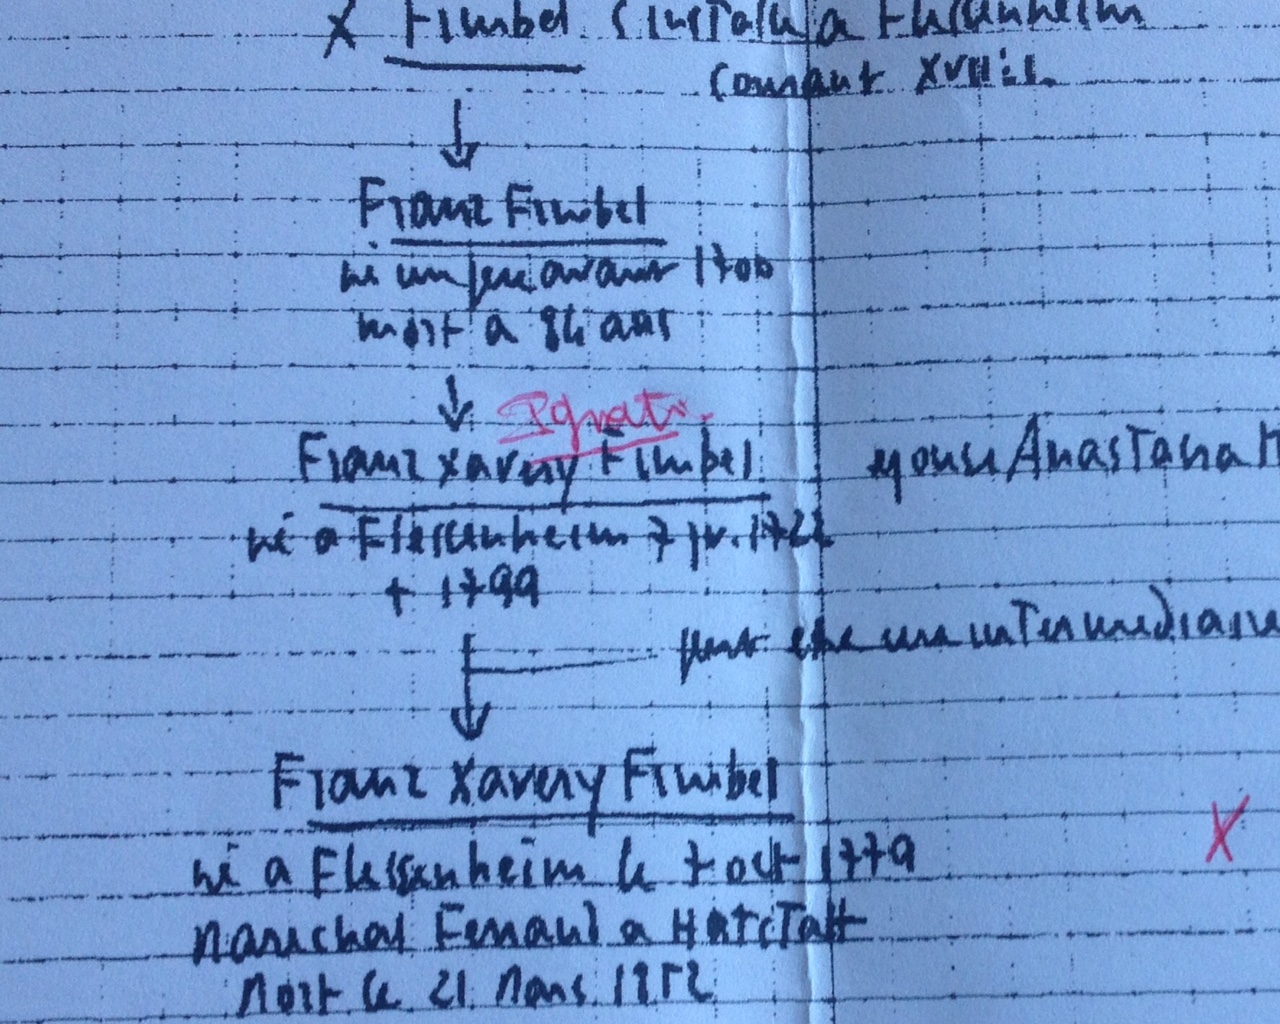 X Fimbel s'installe a Flessenheim
courant XVIIIs.
Franz Fimbel
né un peu avant 1700
mort a 84 ans
Ignati.
Franz Xavery Fimbel
épouse Anastasia
né a Flessenheim 7 jv. 1722
+ 1799
peut etre un intermediaire
Franz Xavery Fimbel
né a Flessenheim le 7 oct 1779
Marechal Ferrand a Hatstatt
Mort le 21 Mars 1852
X